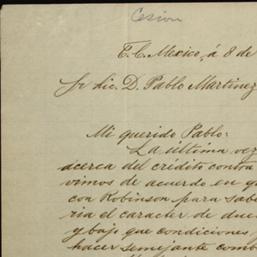 Cesion
T. C. Mexico, á 8 de
Sr Lic. D. Pablo Martinez
Mi querido Pablo:
La última vez
acerca del crédito contra
vimos de acuerdo en q
con Robinson para sab
ria el caracter de due
y bajo que condiciones
hacer semejante comb